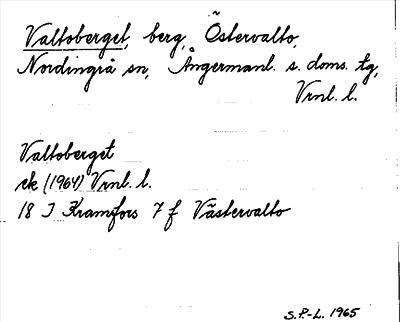 Valtoberget, berg, Östervalto,
Nordingrå sn, Ångermanl. s. doms. tg,
Vrnl. l.
Valtoberget
ek (1964) Vrnl. l.
18 J Kramfors 7 f Västervalto
S.P.-L. 1965